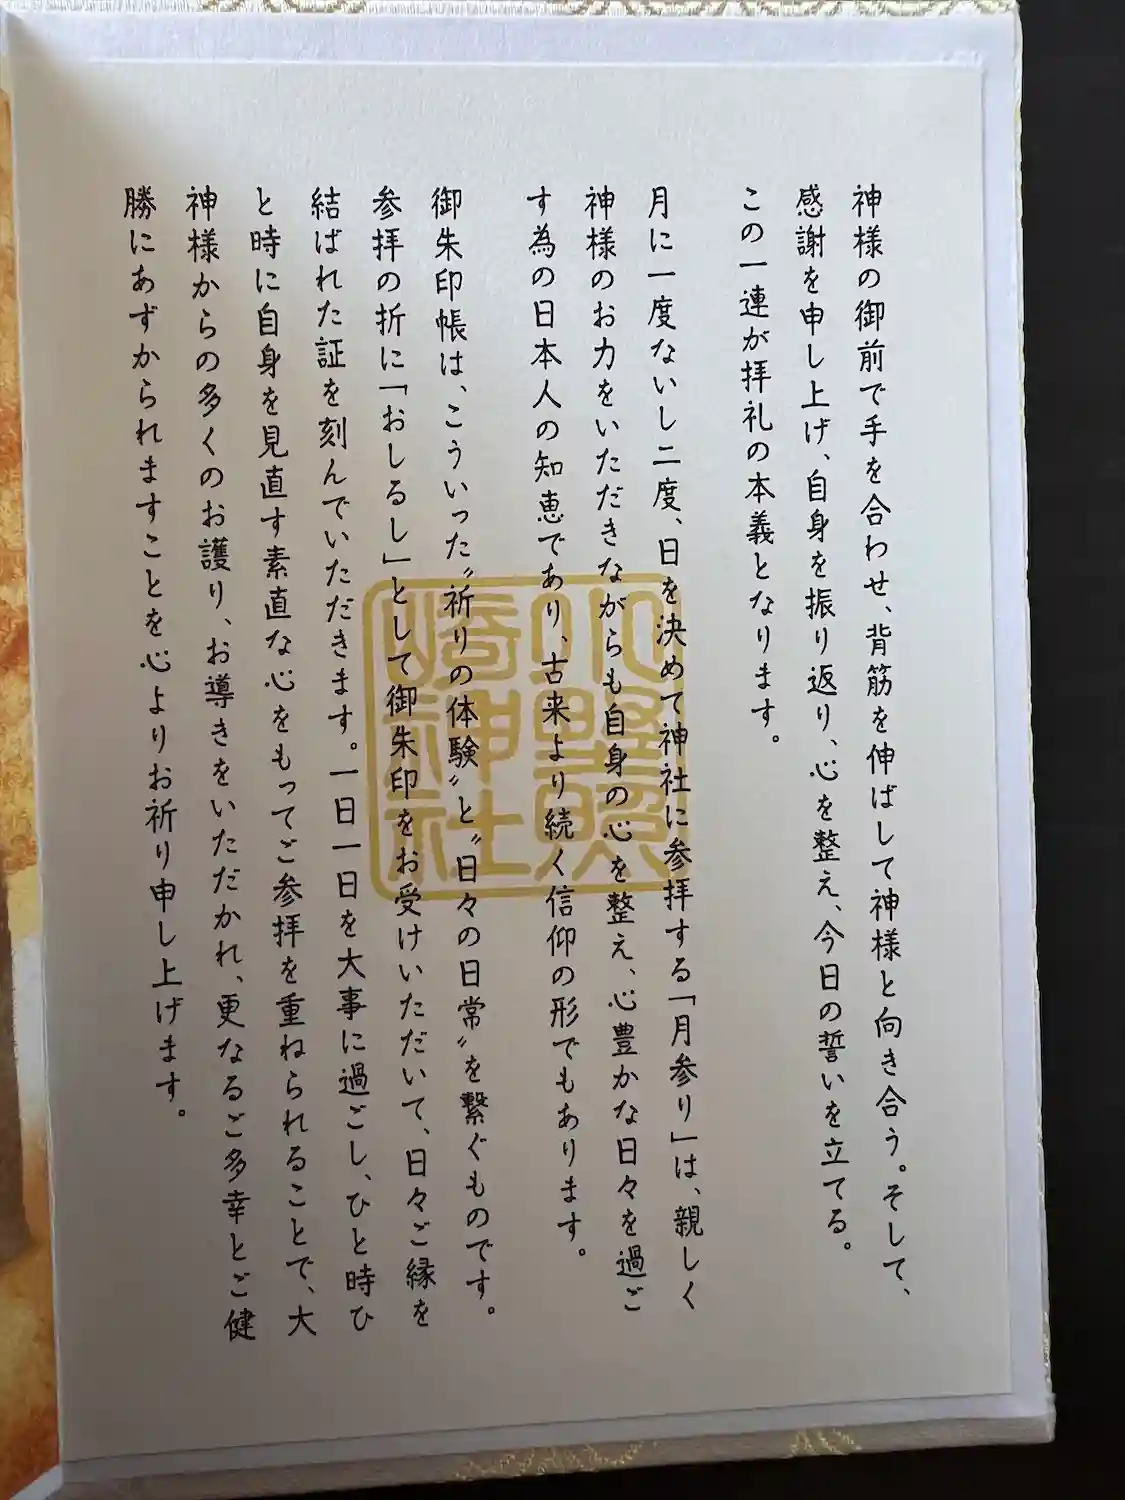 神様の御前で手を合わせ、背筋を伸ばして神様と向き合う。そして、
感謝を申し上げ、自身を振り返り、心を整え、今日の誓いを立てる。
この一連が拝礼の本義となります。
月に一度ないし二度、日を決めて神社に参拝する「月参り」は、親しく
神様のお力をいただきながらも自身の心を整え、心豊かな日々を過ご
す為の日本人の知恵であり、古来より続く信仰の形でもあります。
御朱印帳は、こういった〝祈りの体験〟と〝日々の日常〟を繋ぐものです。
参拝の折に「おしるし」として御朱印をお受けいただいて、日々ご縁を
結ばれた証を刻んでいただきます。一日一日を大事に過ごし、ひと時ひ
と時に自身を見直す素直な心をもってご参拝を重ねられることで、大
神様からの多くのお護り、お導きをいただかれ、更なるご多幸とご健
勝にあずかられますことを心よりお祈り申し上げます。
小野照
崎神社